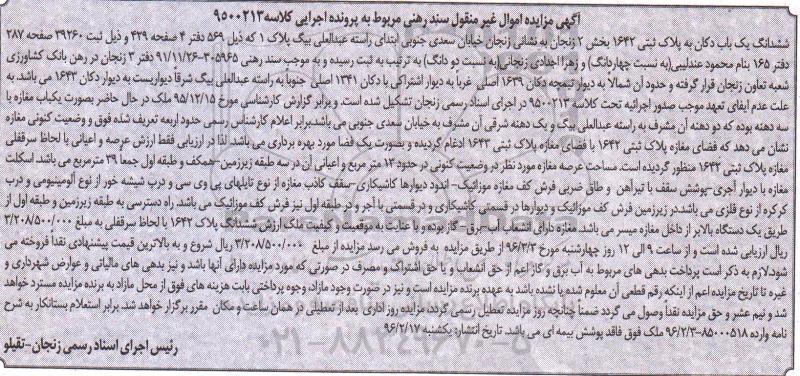 آگهی مزایده اموال غیر منقول سند رهنی مربوط به پرونده اجرایی کلاسه ۹۵۰۰۲۱۳
ششدانگ یک باب دکان به پلاک ثبتی ۱۶۴۲ بخش ۲ زنجان به نشانی زنجان خیابان سعدی جنوبی ابتدای راسته عبدالعلی بیگ پلاک ۱ که ذیل ۵۶۹ دفتر ۴ صفحه ۴۲۹ و ذیل ثبت ۳۹۲۶۰ صفحه ۲۸۷
دفتر ۱۶۵ بنام محمود عندلیبی(به نسبت چهاردانگ) و زهرا اجدادی زنجانی(به نسبت دو دانگ) به ترتیب به ثبت رسیده و به موجب سند رهنی ۳۰۵۹۶۵-۹۱/۱۱/۲۶ دفتر ۳ زنجان در رهن بانک کشاورزی
شعبه تعاون زنجان قرار گرفته و حدود آن شمالاً به دیوار نیمچه دکان ۱۶۳۹ اصلی غرباً به دیوار اشتراکی با دکان ۱۳۴۱ اصلی جنوباً به راسته عبدالعلی بیگ شرقاً دیواریست به دیوار دکان ۱۶۴۳ می باشد. به
علت عدم ایفای تعهد موجب صدور اجرائیه تحت کلاسه ۹۵۰۰۲۱۳ در اجرای اسناد رسمی زنجان تشکیل شده است. و برابر گزارش کارشناسی مورخ ۹۵/۱۲/۱۵ ملک در حال حاضر بصورت یکباب مغازه با
سه دهنه بوده که دو دهنه آن مشرف به راسته عبدالعلی بیگ و یک دهنه شرقی آن مشرف به خیابان سعدی جنوبی می باشد.برابر اعلام کارشناس رسمی حدود اربعه تعریف شده فوق و وضعیت کنونی مغازه
نشان می دهد که فضای مغازه پلاک ثبتی ۱۶۴۲ با فضای مغازه پلاک ثبتی ۱۶۴۳ ادغام گردیده و بصورت یک فضا مورد بهره برداری می باشد. لذا در ارزیابی فقط ارزش عرصه و اعیانی با لحاظ سرقفلی
مغازه پلاک ثبتی ۱۶۴۲ منظور گردیده است. مساحت عرصه مغازه مورد نظر در وضعیت کنونی در حدود ۱۳ متر مربع و اعیانی آن در سه طبقه زیرزمین-همکف و طبقه اول جمعا ۳۹ مترمربع می باشد. اسکلت
مغازه با دیوار آجری-پوشش سقف با تیرآهن و طاق ضربی فرش کف مغازه موزائیک- اندود دیوارها کاشیکاری-سقف کاذب مغازه از نوع تایلهای پی وی سی و درب شیشه خور از نوع آلومینیومی و درب
کرکره از نوع فلزی می باشد.در زیرزمین فرش کف موزائیک و دیوارها در قسمتی کاشیکاری و در قسمتی با آجر و در طبقه اول نیز فرش کف موزائیک می باشد. راه دسترسی به طبقه زیرزمین و طبقه اول از
طریق یک دستگاه بالابر از داخل مغازه میسر می باشد. مغازه دارای انشعاب آب-برق- گاز بوده و با عنایت به موقعیت و کیفیت ملک ارزش ششدانگ پلاک ۱۶۴۲ با لحاظ سرقفلی به مبلغ ۳/۲۰۸/۵۰۰/۰۰۰
ریال ارزیابی شده است و از ساعت ۹ الی ۱۲ روز چهارشنبه مورخ ۹۶/۳/۳ از طریق مزایده به فروش می رسد مزایده از مبلغ ۳/۲۰۸/۵۰۰/۰۰۰ ریال شروع و به بالاترین قیمت پیشنهادی نقداً فروخته می
شود.لازم به ذکر است پرداخت بدهی های مربوط به آب برق و گاز اعم از حق انشعاب و یا حق اشتراک و مصرف در صورتی که مورد مزایده دارای آنها باشد و نیز بدهی های مالیاتی و عوارض شهرداری و
غیره تا تاریخ مزایده اعم از اینکه رقم قطعی آن معلوم شده یا نشده باشد به عهده برنده مزایده است و نیز در صورت وجود مازاد وجوه پرداختی بابت هزینه های فوق از محل مازاد به برنده مزایده مسترد خواهد
شد و نیم عشر و حق مزایده نقداً وصول می گردد ضمناً چنانچه روز مزایده تعطیل رسمی گردد، مزایده روز اداری بعد از تعطیلی در همان ساعت و مکان مقرر برگزار خواهد شد. برابر استعلام بستانکار به شرح
نامه وارده ۸۵۰۰۰۵۱۸-۹۶/۲/۳ ملک فوق فاقد پوشش بیمه ای می باشد. تاریخ انتشار: یکشنبه ۹۶/۲/۱۷
رئیس اجرای اسناد رسمی زنجان-تقیلو
۰۲۱-۸۸۳۴۹۶۷۰-۵